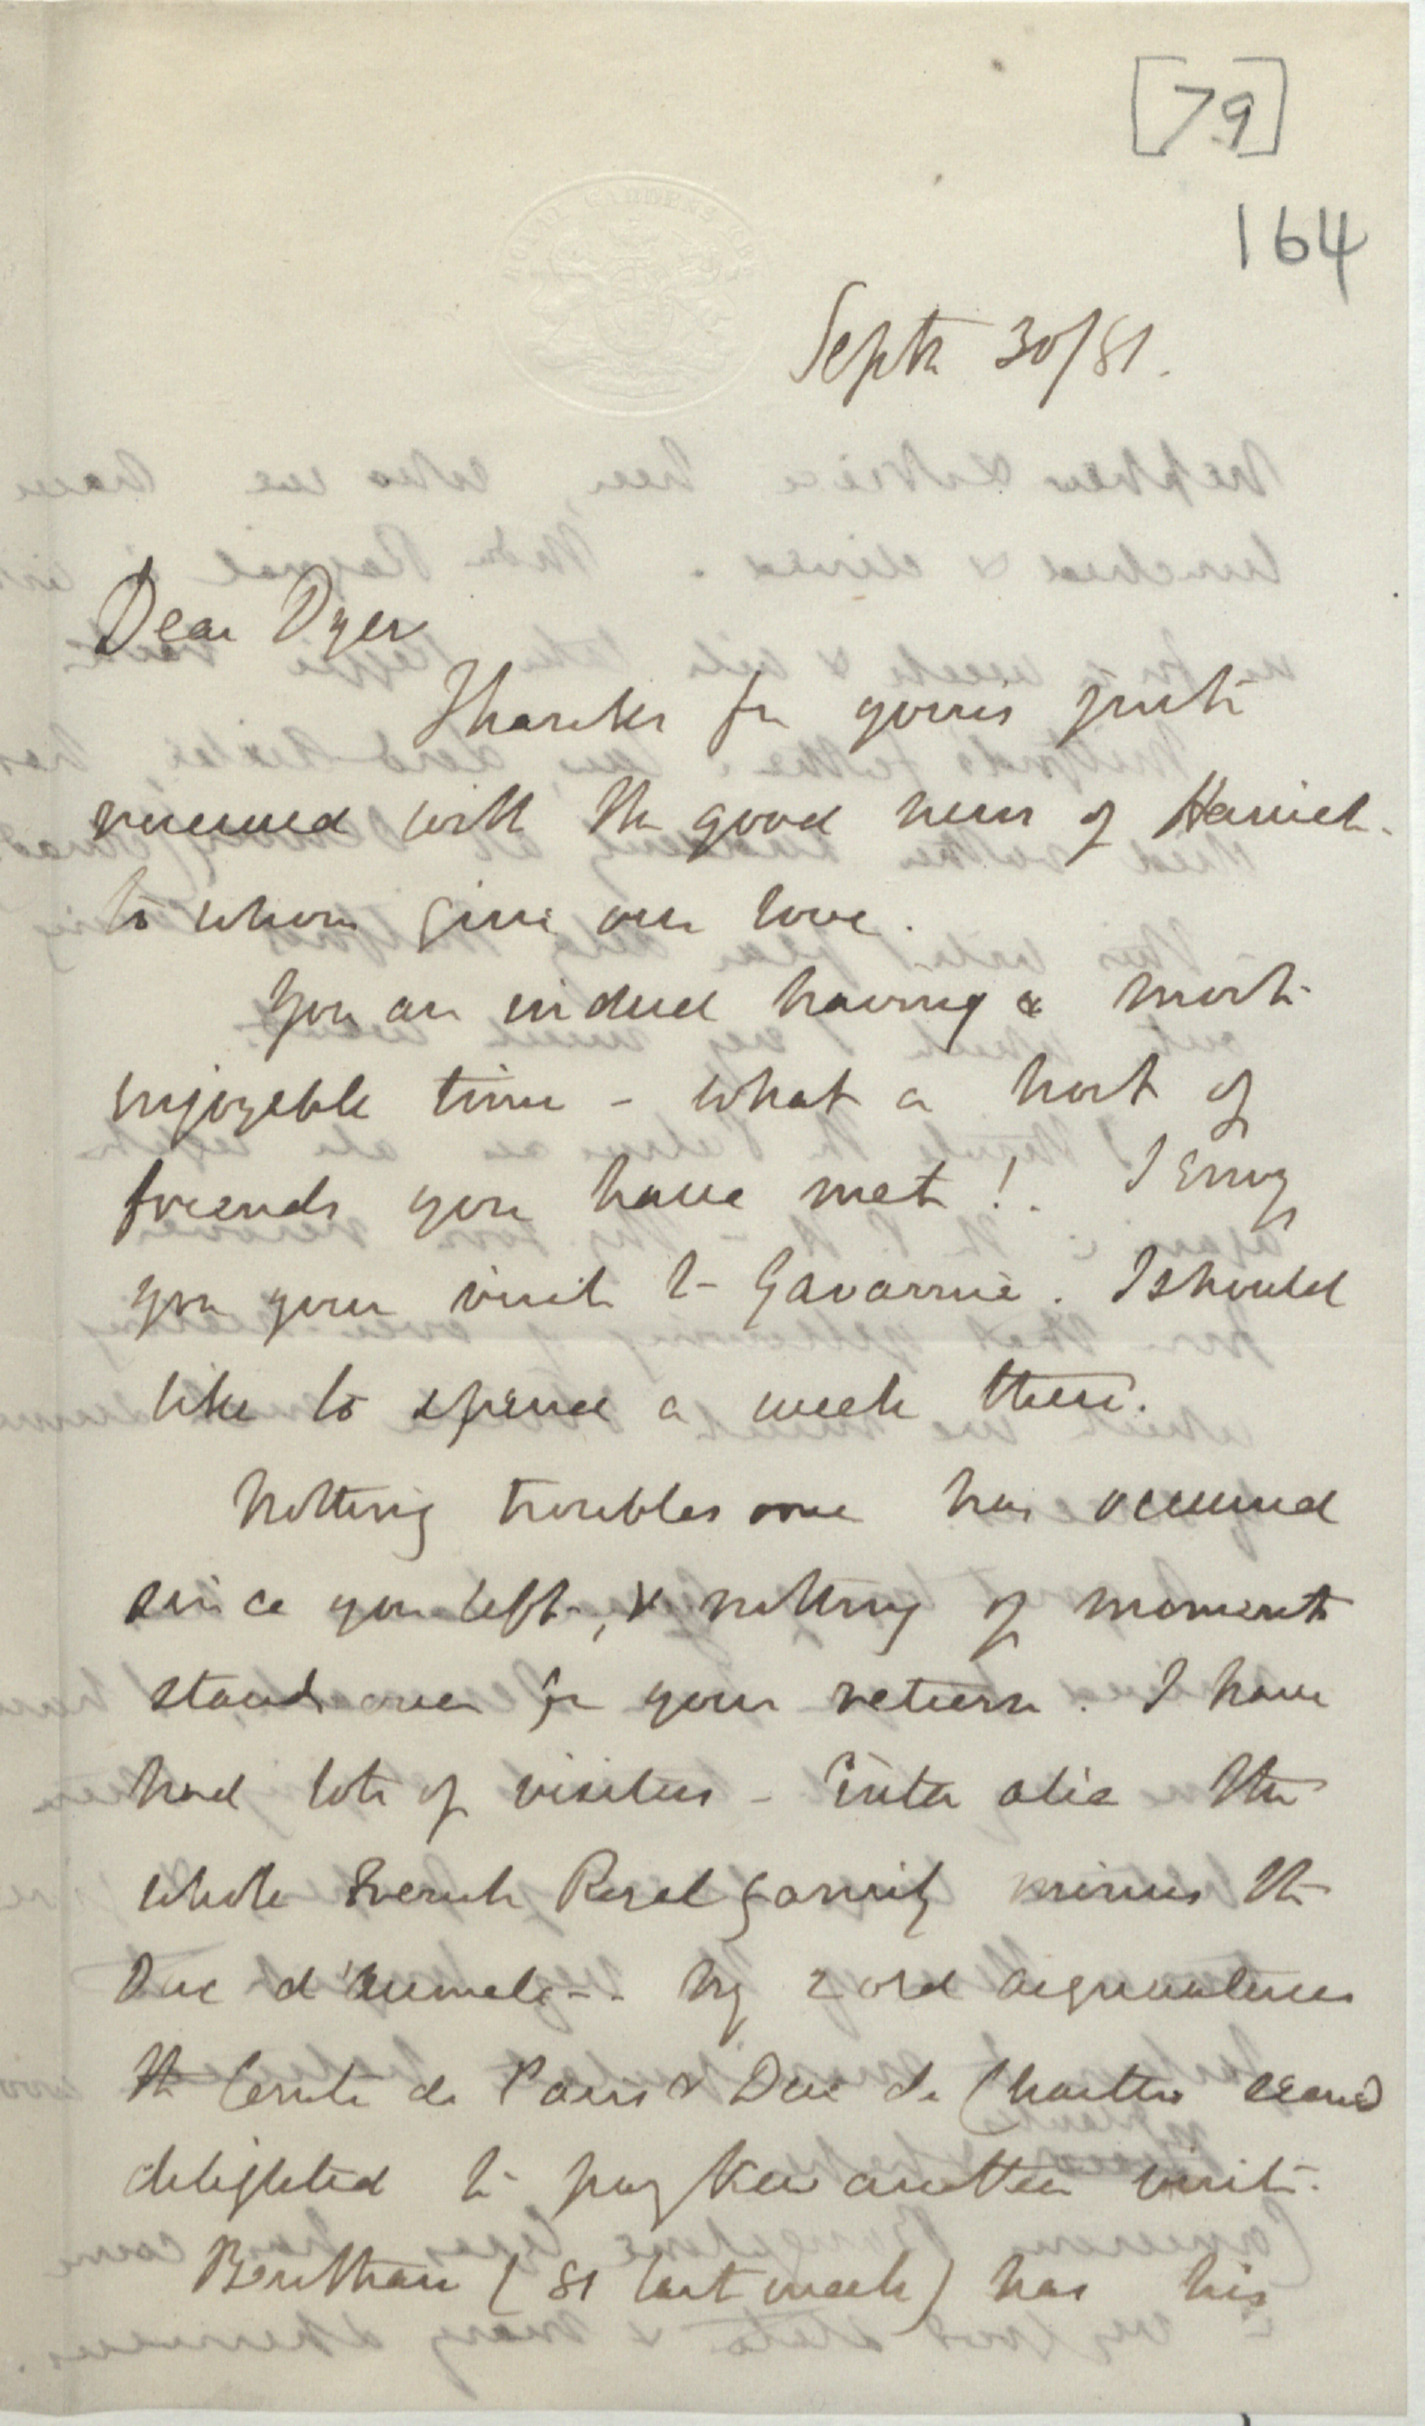 [79]
164
ROYAL GARDENS KEW
Septr 30/81.
Dear Dyer
Thanks for yours just
received with the good news of Harriet.
to whom give our love.
You are indeed having a most
enjoyable time - what a host of
friends you have met! I envy
you your visit to Gavarnie. I should
like to spend a week there.
Nothing troublesome has occurred
since you left, & nothing of moment
stands over for your return. I have
had lots of visitors - inter alia the
whole French Royal family minus the
Duc d'Aumale -. My 2 old acquaintances
the Comte de Paris & Duc de Chartres seemed
delighted to pay Kew another visit.
Bentham (81 last week) has his